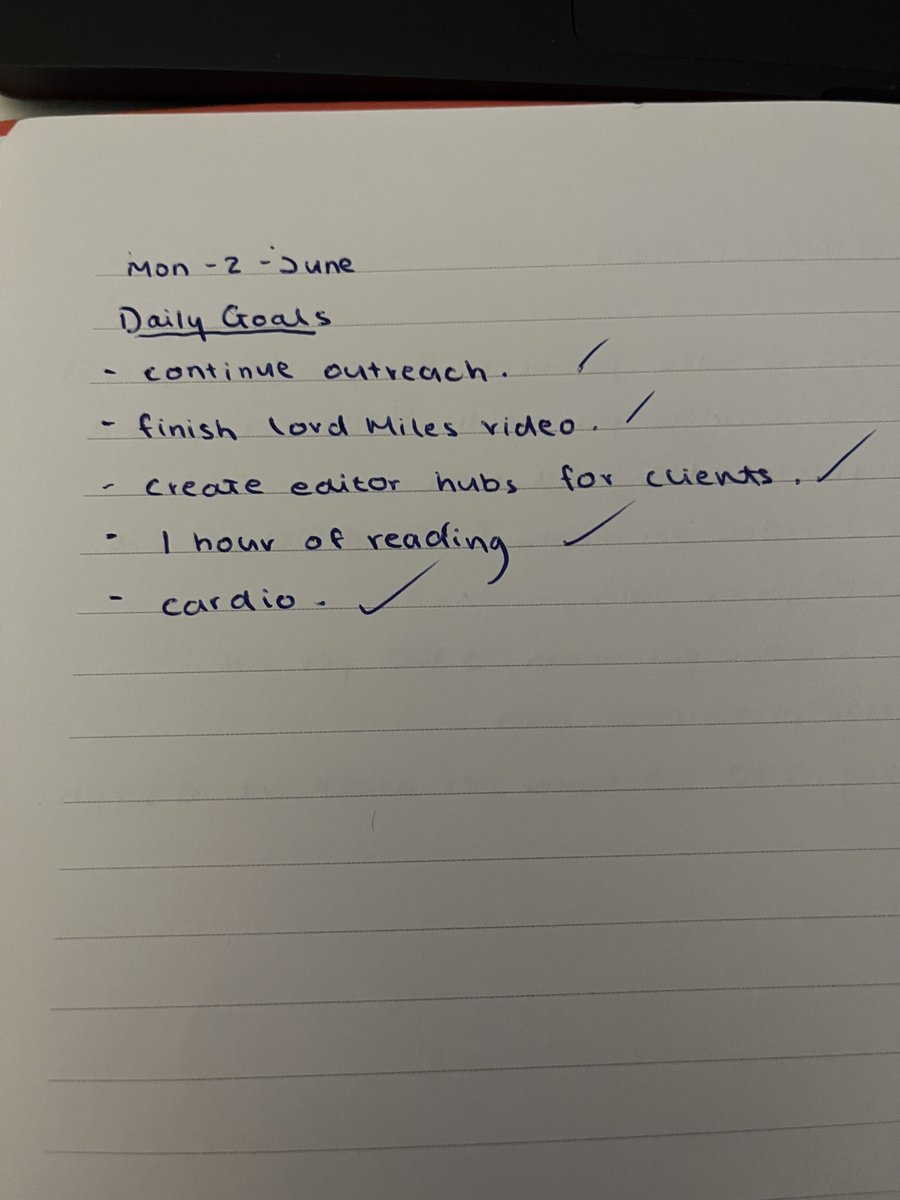 Mon - 2 - June
Daily Goals
- continue outreach. ✓
- finish lord Miles video. ✓
- create editor hubs for clients. ✓
- 1 hour of reading ✓
- cardio. ✓